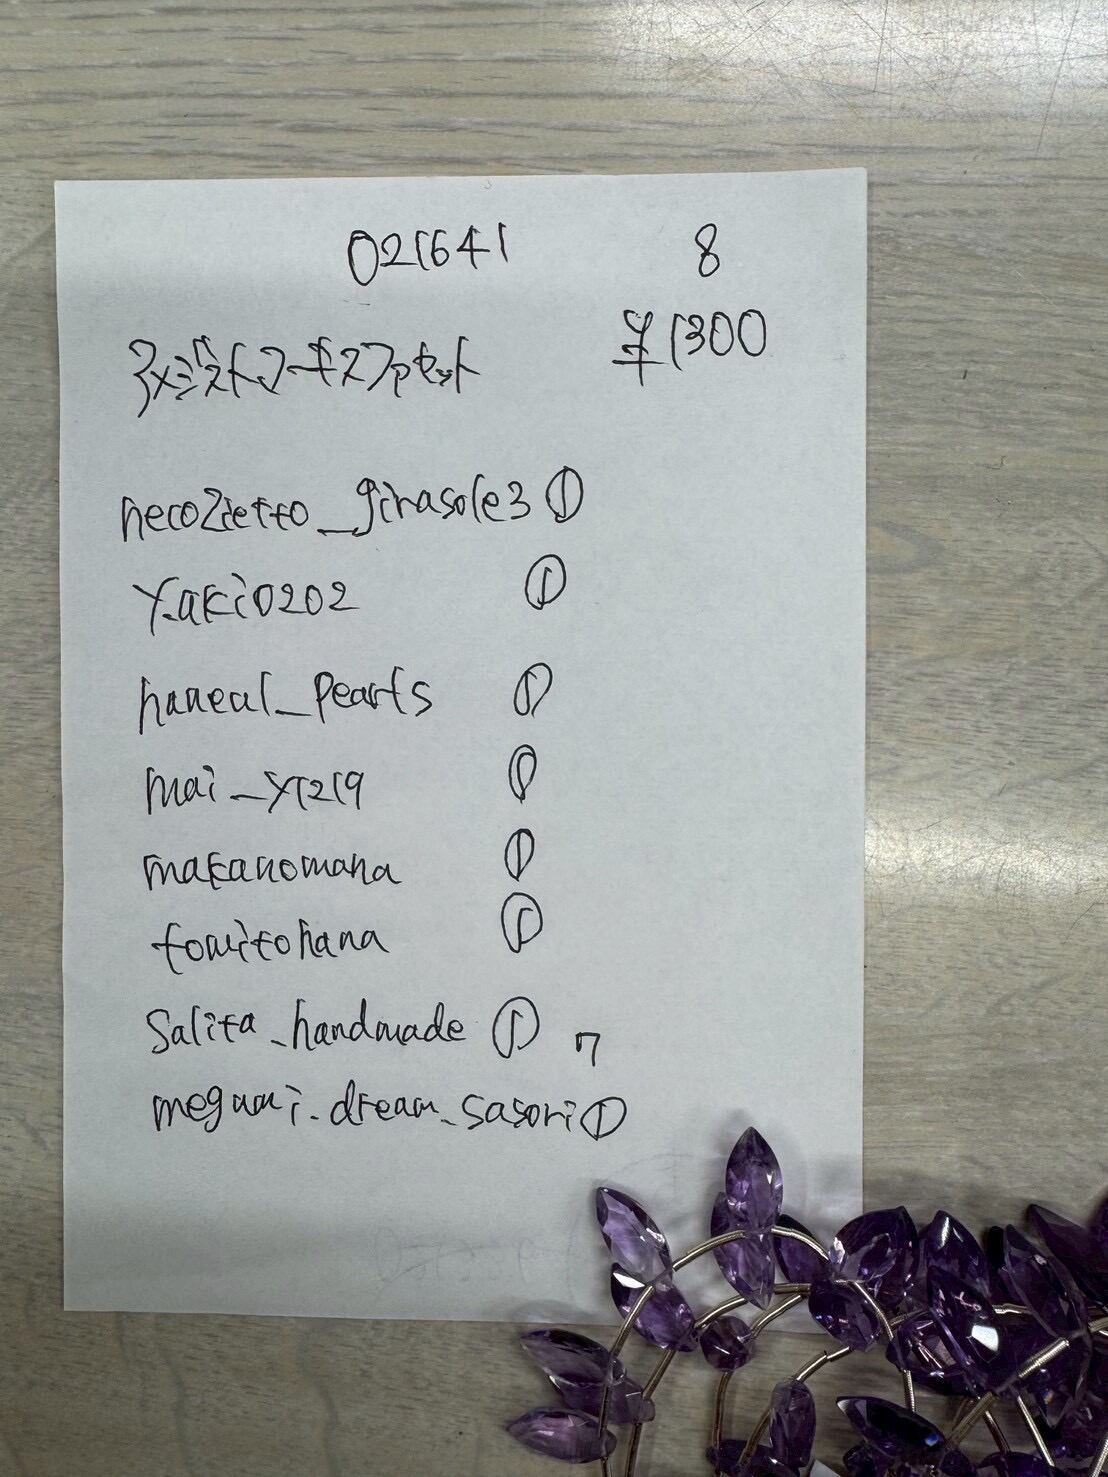 021641 8
¥1300
neco2ietto_girasole3 ①
yaki0202 ①
haneul_pearls ①
mai_y1219 ①
makanomana ①
tomitohana ①
Salita_handmade ① 7
megumi.dream_sasori ①